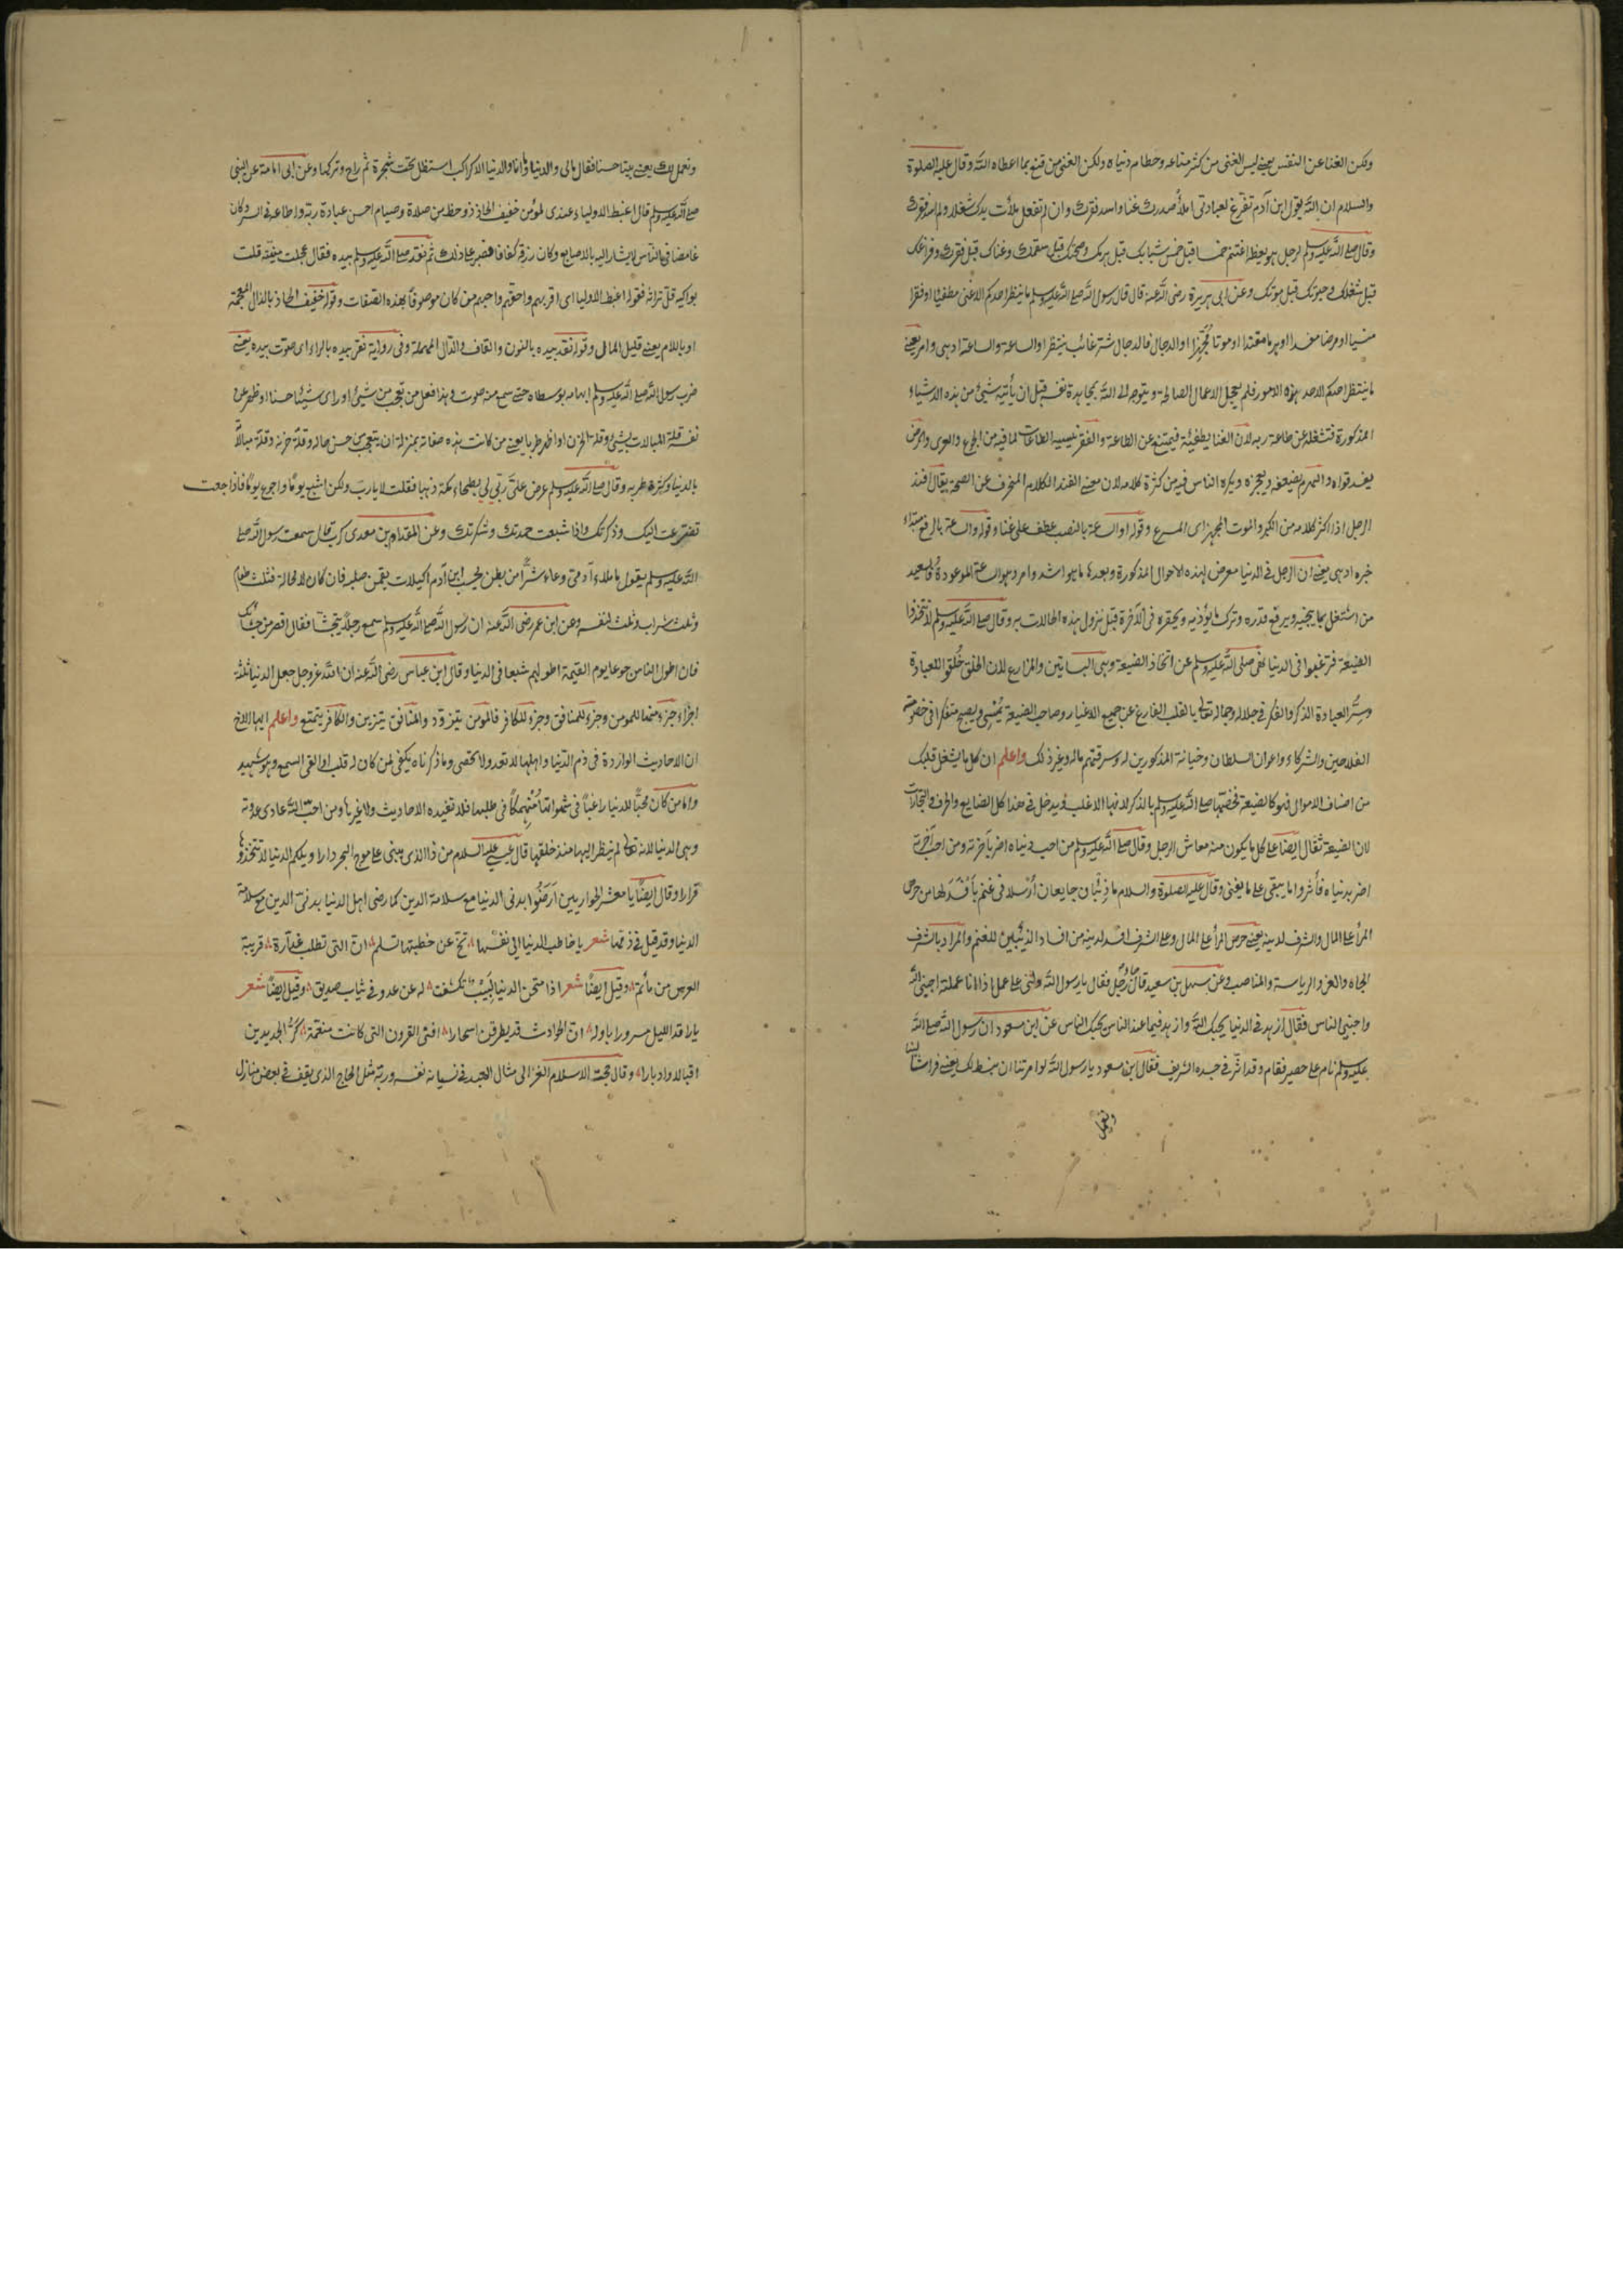 ولكن الغنا عن النفس يعني ليس الغنى من كثر متاعه وحطام دنياه ولكن الغنى من قنع بما اعطاه الله وقال عليه الصلوة
والسلام ان الله يقول ابن آدم تفرغ لعبادتى املأ صدرك غنا واسد فقرك وان لم تفعل ملأت يدك شغلا ولم اسد فقرك
وقال صلى الله عليه وسلم لرجل وهو يعظه اغتنم خمسا قبل خمس شبابك قبل هرمك وصحتك قبل سقمك وغناك قبل فقرك وفراغك
قبل شغلك وحيوتك قبل موتك وعن ابى هريرة رضى الله عنه قال قال رسول الله صلى الله عليه وسلم ما ينتظر احدكم الا غنى مطغيا او فقرا
منسيا او مرضا مفسدا او هرما مفندا او موتا مُجْهِزا او الدجال فالدجال شر غائب ينتظر او الساعة والساعة ادهى وامر يعني
ما ينتظر احدكم الا احد هذه الامور فلم يعجل الاعمال الصالحة ويتوجه الى الله بمجاهدة نفسه قبل ان يأتيه شيئ من هذه الاشياء
المذكورة فتشغله عن طاعة ربه لان الغنا يطغيه فيمتنع عن الطاعة والفقر ينسيه الطاعات لما فيه من الجوع والعرى والمرض
يفسد قواه والهرم يضعفه ويعجزه ويكره الناس فيه من كثرة كلامه لان معنى الفند الكلام المنحرف عن الصحة يقال افند
الرجل اذا اكثر كلامه من الكبر والموت المجهز اى المسرع وقوله او الساعة بالنصب عطف على غناء وقوله والساعة بالرفع مبتداء
خبره ادهى يعني ان الرجل فى الدنيا معرض لهذه الاحوال المذكورة وبعدها ما هو اشد وامر وهو الساعة الموعودة فالسعيد
من اشتغل بما ينجيه ويرفع قدره وترك ما يؤذيه ويحقره فى الآخرة قبل نزول هذه الحالات به وقال صلى الله عليه وسلم لا تتخذوا
الضيعة فترغبوا فى الدنيا نهى صلى الله عليه وسلم عن اتخاذ الضيعة وهى البساتين والمزارع لان الخلق خُلقوا للعبادة
وسِرّ العبادة الذكر والفكر فى جلاله وجماله تعالى بالقلب الفارغ عن جميع الاغيار وصاحب الضيعة يُمْسِى ويصبح متفكرا فى خصومة
الفلاحين والشركاء واعوان السلطان وخيانة المذكورين له وسرقتهم ماله وغير ذلك واعلم ان كل ما يشغل قلبك
من اصناف الاموال فهو كالضيعة فخصّها صلى الله عليه وسلم بالذكر لانها الاغلب ويدخل فى هذا كل الضايع والحرف والتجارات
لان الضيعة تقال ايضا على كل ما يكون منه معاش الرجل وقال صلى الله عليه وسلم من احب دنياه اضر بآخرته ومن احب آخرته
اضر بدنياه فأثروا ما يبقى على ما يفنى وقال عليه الصلوة والسلام ما ذئبان جايعان اُرْسلا فى غنم بأفْسَدَ لها من حرص
المرأ على المال والشرف لدينه يعني حرص المرأ على المال وعلى الشرف افسد لدينه من افساد الذئبين للغنم والمراد بالشرف
الجاه والعز والرياسة والمناصب وعن سهل بن سعيد قال جاء رجل فقال يا رسول الله دلنى على عمل اذا انا عملته احبنى الله
واحبنى الناس فقال ازهد فى الدنيا يحبك الله وازهد فيما عند الناس يحبك الناس عن ابن مسعود ان رسول الله صلى الله
عليه وسلم نام على حصير فقام وقد اثر فى جسده الشريف فقال ابن مسعود يا رسول الله لو امرتنا ان نبسط لك يعني فراشا لينا
ونعمل
ونعمل لك يعني بيتا حسنا فقال مالى والدنيا وانا والدنيا الا كراكب استظل تحت شجرة ثم راح وتركها وعن ابى امامة عن النبى
صلى الله عليه وسلم قال اغبط الاولياء عندى لمؤمن خفيف الحاذ ذو حظ من صلاة وصيام احسن عبادة ربه واطاعه فى السر وكان
غامضا فى الناس لا يشار اليه بالاصابع وكان رزقه كفافا فصبر على ذلك ثم نقد صلى الله عليه وسلم بيده فقال عجلت منيته قلت
بواكيه قلّ تراثه فقوله اغبط الاوليا اى اقربهم واحقهم واحبهم من كان موصوفا بهذه الصفات وقوله خفيف الحاذ بالذال المعجمة
او باللام يعني قليل المال وقوله نقد بيده بالنون والقاف والدال المهملة وفى رواية نقر بيده بالراء اى صوت بيده يعني
ضرب رسول الله صلى الله عليه وسلم ابهامه بوسطاه حتى سمع منه صوت وهذا فعل من تعجب من شيئ او راى شيئا حسنا او ظهر عن
نفسه قلة المبالات بشيئ وقلة الحزن او اظهر طربا يعني من كانت هذه صفاته بمنزلة ان يتعجب من حسن حاله وقلة حزنه وقلة مبالاته
بالدنيا وكثرة طربه وقال صلى الله عليه وسلم عرض علىّ ربّى لى بطحاء مكة ذهبا فقلت لا يا ربّ ولكن اشبع يوما واجوع يوما فاذا جعت
تضرعت اليك وذكرتك واذا شبعت حمدتك وشكرتك وعن المقدام بن معدى كرب قال سمعت رسول الله صلى
الله عليه وسلم يقول ما ملاء آدمى وعاء شرًّا من بطن بحسب ابن آدم اكيلات يقمن صلبه فان كان لا محالة فثلث طعام
وثلث شراب وثلث لنفسه وعن ابن عمر رضى الله عنه ان رسول الله صلى الله عليه وسلم سمع رجلا يتجشأ فقال اقصر من جشائك
فان اطول الناس جوعا يوم القيمة اطولهم شبعا فى الدنيا وقال ابن عباس رضى الله عنه ان الله عز وجل جعل الدنيا ثلثة
اجزاء جزء منها للمومن وجزء للمنافق وجزء للكافر فالمومن يتزود والمنافق يتزين والكافر يتمتع واعلم ايها الاخ
ان الاحاديث الواردة فى ذم الدنيا واهلها لا تعد ولا تحصى وما ذكرناه يكفى لمن كان له قلب او القى السمع وهو شهيد
واما من كان محبًّا للدنيا راغبًا فى شهواتها مُنْهِمكًا فى طلبها فلا تفيده الاحاديث ولا غيرها ومن احبّ الله عادى عدوّه
وهى الدنيا لانه تعالى لم ينظر اليها منذ خلقها قال عيسى عليه السلام من ذا الذى يبنى على موج البحر دارا ويلكم الدنيا لا تتخذوها
قرارا وقال ايضًا يا معشر الحواريين اَرضَوْا بدنى الدنيا مع سلامة الدين كما رضى اهل الدنيا بدنىّ الدين مع سلامة
الدنيا وقد قيل فى ذمّها شعر يا خاطب الدنيا الى نفسها ۸ تنحّ عن خطبتها تسلم ۸ انّ التى تطلب غدّارة ۸ قريبة
العرس من مأتم ۸ وقيل ايضًا شعر اذا امتحن الدنيا لَبِيْبٌ تكشفت ۸ له عن عدو فى ثياب صديق ۸ وقيل ايضًا شعر
يا راقد الليل مسرورا باوله ۸ انّ الحوادث قد يطرقن اسحارا ۸ افنى القرون التى كانت منعّمة ۸ كَرُّ الجديدين
اقبالا وادبارا ۸ وقال حجة الاسلام الغزالى مثال العبد فى نسيانه نفسه وربّه مثل الحاج الذى يقف فى بعض منازل